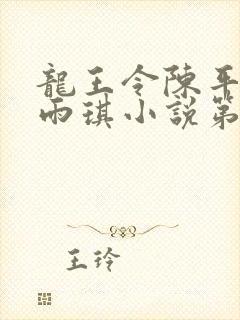 龍王令陳平
雨琪小説第
王玲